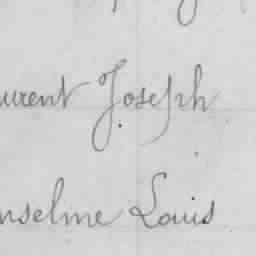 urent Joseph
nselme Louis